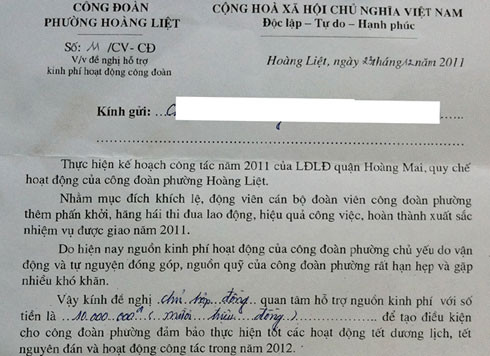 CÔNG ĐOÀN
PHƯỜNG HOÀNG LIỆT
CỘNG HOÀ XÃ HỘI CHỦ NGHĨA VIỆT NAM
Độc lập – Tự do – Hạnh phúc
Số: 11 /CV- CĐ
V/v đề nghị hỗ trợ
kinh phí hoạt động công đoàn
Hoàng Liệt, ngày tháng 12 năm 2011
Kính gửi:
Thực hiện kế hoạch công tác năm 2011 của LĐLĐ quận Hoàng Mai, quy chế
hoạt động của công đoàn phường Hoàng Liệt.
Nhằm mục đích khích lệ, động viên cán bộ đoàn viên công đoàn phường
thêm phấn khởi, hăng hái thi đua lao động, hiệu quả công việc, hoàn thành xuất sắc
nhiệm vụ được giao năm 2011.
Do hiện nay nguồn kinh phí hoạt động của công đoàn phường chủ yếu do vận
động và tự nguyện đóng góp, nguồn quỹ của công đoàn phường rất hạn hẹp và gặp
nhiều khó khăn.
Vậy kính đề nghị chủ hộp đồng quan tâm hỗ trợ nguồn kinh phí với số
tiền là 10.000.000đ ( mười triệu đồng ) để tạo điều kiện
cho công đoàn phường đảm bảo thực hiện tốt các hoạt động tết dương lịch, tết
nguyên đán và hoạt động công tác trong năm 2012.